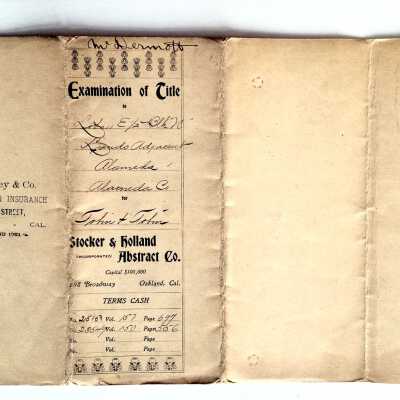 McDermott
Examination of Title
to
Lands Adjacent
Alameda
Alameda Co
for
John & John
Stocker & Holland
INCORPORATED Abstract Co.
Capital $100,000
Broadway Oakland, Cal.
TERMS CASH
No. Vol. 157 Page
No. Vol. 157 Page 556
No. Vol. Page
No. Vol. Page
ey & Co.
INSURANCE
STREET,
CAL.